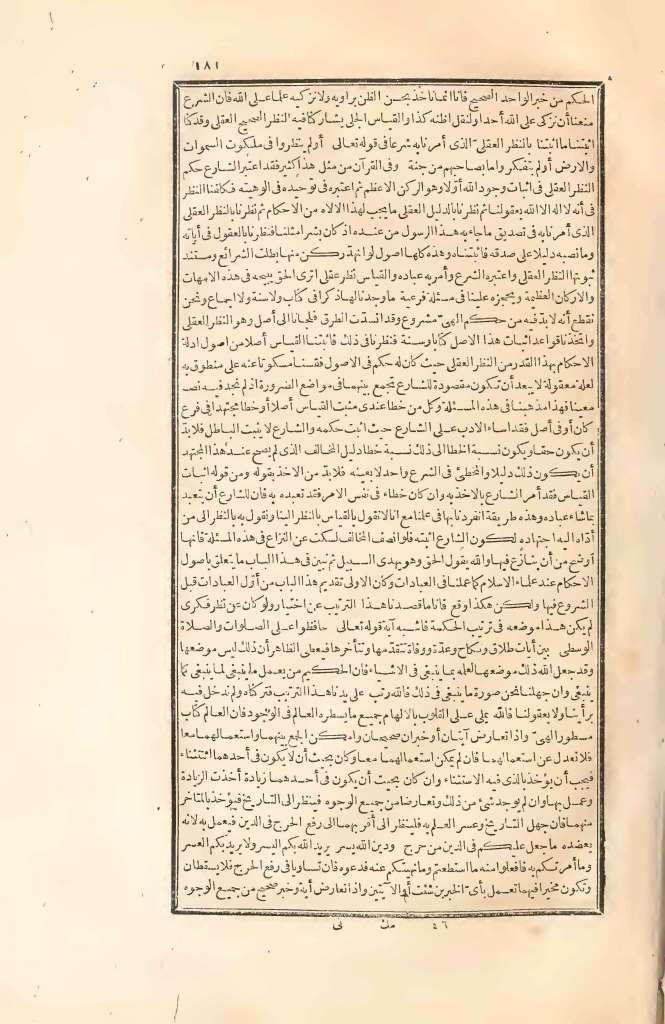 ١٨١
الحكم من خبر الواحد الصحيح فانا انما نأخذ بحسن الظن براويه ولا نزكيه علما على الله فان الشرع
منعنا أن نزكى على الله أحدا ولنقل اظنه كذا والقياس الجلى يشاركنا فيه النظر الصحيح العقلى وقد كنا
اثبتنا ما اثبتنا بالنظر العقلى الذى أمرنا به شرعا فى قوله تعالى أولم ينظروا فى ملكوت السموات
والارض أولم يتفكروا ما بصاحبهم من جنة وفى القرآن من مثل هذا كثير فقد اعتبر الشارع حكم
النظر العقلى فى اثبات وجود الله أولا وهو الركن الاعظم ثم اعتبره فى توحيده فى الوهيته فكلفنا النظر
فى أنه لا اله الا الله بعقولنا ثم نظرنا بالدليل العقلى ما يجب لهذا الاله من الاحكام ثم نظرنا بالنظر العقلى
الذى أمرنا به فى تصديق ما جاء به هذا الرسول من عنده اذ كان بشرا مثلنا فنظرنا بالعقول فى آياته
وما نصبه دليلا على صدقه فاثبتناه وهذه كلها اصول لو انهد ركن منها بطلت الشرائع ومستند
ثبوتها النظر العقلى واعتبره الشرع وأمر به عباده والقياس نظر عقلى اترى الحق يبيحه فى هذه الامهات
والاركان العظيمة ويحجره علينا فى مسئلة فرعية ما وجدنا لها ذكرا فى كتاب ولا سنة ولا اجماع ونحن
نقطع أنه لا بد فيه من حكم الهى مشروع وقد انسدت الطرق فلجأنا الى أصل وهو النظر العقلى
واتخذنا قواعد اثبات هذا الاصل كتابا وسنة فنظرنا فى ذلك فاثبتنا القياس أصلا من اصول ادلة
الاحكام بهذا القدر من النظر العقلى حيث كان له حكم فى الاصول فقسنا مسكوتا عنه على منطوق به
لعلة معقولة لا يبعد أن تكون مقصودة للشارع تجمع بينهما فى مواضع الضرورة اذ لم نجد فيه نصا
معينا فهذا مذهبنا فى هذه المسئلة وكل من خطأ عندى مثبت القياس أصلا أو خطأ مجتهدا فى فرع
كان أو فى أصل فقد اساء الادب على الشارع حيث اثبت حكمه والشارع لا يثبت الباطل فلا بد
أن يكون حقا ويكون نسبة الخطا الى ذلك نسبة خطا دليل المخالف الذى لم يصح عند هذا المجتهد
أن يكون ذلك دليلا والمخطئ فى الشرع واحد لا بعينه فلا بد من الاخذ بقوله ومن قوله اثبات
القياس فقد أمر الشارع بالاخذ به وان كان خطاء فى نفس الامر فقد تعبده به فان للشارع أن يتعبد
بما شاء عباده وهذه طريقة انفردنا بها فى علمنا مع انا لا نقول بالقياس بالنظر الينا ونقول به بالنظر الى من
أداه اليه اجتهاده لكون الشارع اثبته فلو انصف المخالف لسكت عن النزاع فى هذه المسئلة فانها
أوضح من أن ينازع فيها والله يقول الحق وهو يهدى السبيل ثم نبين فى هذا الباب ما يتعلق باصول
الاحكام عند علماء الاسلام كما عملنا فى العبادات وكان الاولى تقديم هذا الباب من أول العبادات قبل
الشروع فيها ولكن هكذا وقع فانا ما قصدنا هذا الترتيب عن اختيار ولو كان عن نظر فكرى
لم يكن هذا موضعه فى ترتيب الحكمة فاشبه آية قوله تعالى حافظوا على الصلوات والصلاة
الوسطى بين آيات طلاق ونكاح وعدة ووفاة تتقدمها وتتأخرها فيعطى الظاهر أن ذلك ليس موضعها
وقد جعل الله ذلك موضعها لعلمه بما ينبغى فى الاشياء فان الحكيم من يعمل ما ينبغى لما ينبغى كما
ينبغى وان جهلنا نحن صورة ما ينبغى فى ذلك فالله رتب على يدنا هذا الترتيب فتركناه ولم ندخل فيه
برأينا ولا بعقولنا فالله يملى على القلوب بالالهام جميع ما يسطره العالم فى الوجود فان العالم كتاب
مسطور الهى واذا تعارض آيتان أو خبران صحيحان وامكن الجمع بينهما واستعمالهما معا
فلا نعدل عن استعمالهما فان لم يمكن استعمالهما معا وكان بحيث أن لا يكون فى أحدهما استثناء
فيجب أن يؤخذ بالذى فيه الاستثناء وان كان بحيث أن يكون فى أحدهما زيادة أخذت الزيادة
وعمل بها وان لم يوجد شئ من ذلك وتعارضا من جميع الوجوه فينظر الى التاريخ فيؤخذ بالمتأخر
منهما فان جهل التاريخ وعسر العلم به فلينظر الى أقربهما الى رفع الحرج فى الدين فيعمل به لانه
يعضده ما جعل عليكم فى الدين من حرج ودين الله يسر يريد الله بكم اليسر ولا يريد بكم العسر
وما أمرتكم به فافعلوا منه ما استطعتم وما نهيتكم عنه فدعوه فان تساويا فى رفع الحرج فلا يسقطان
وتكون مخيرا فيهما تعمل بأى الخبرين شئت أو الآيتين واذا تعارض آية وخبر صحيح من جميع الوجوه
٤٦ مك نى